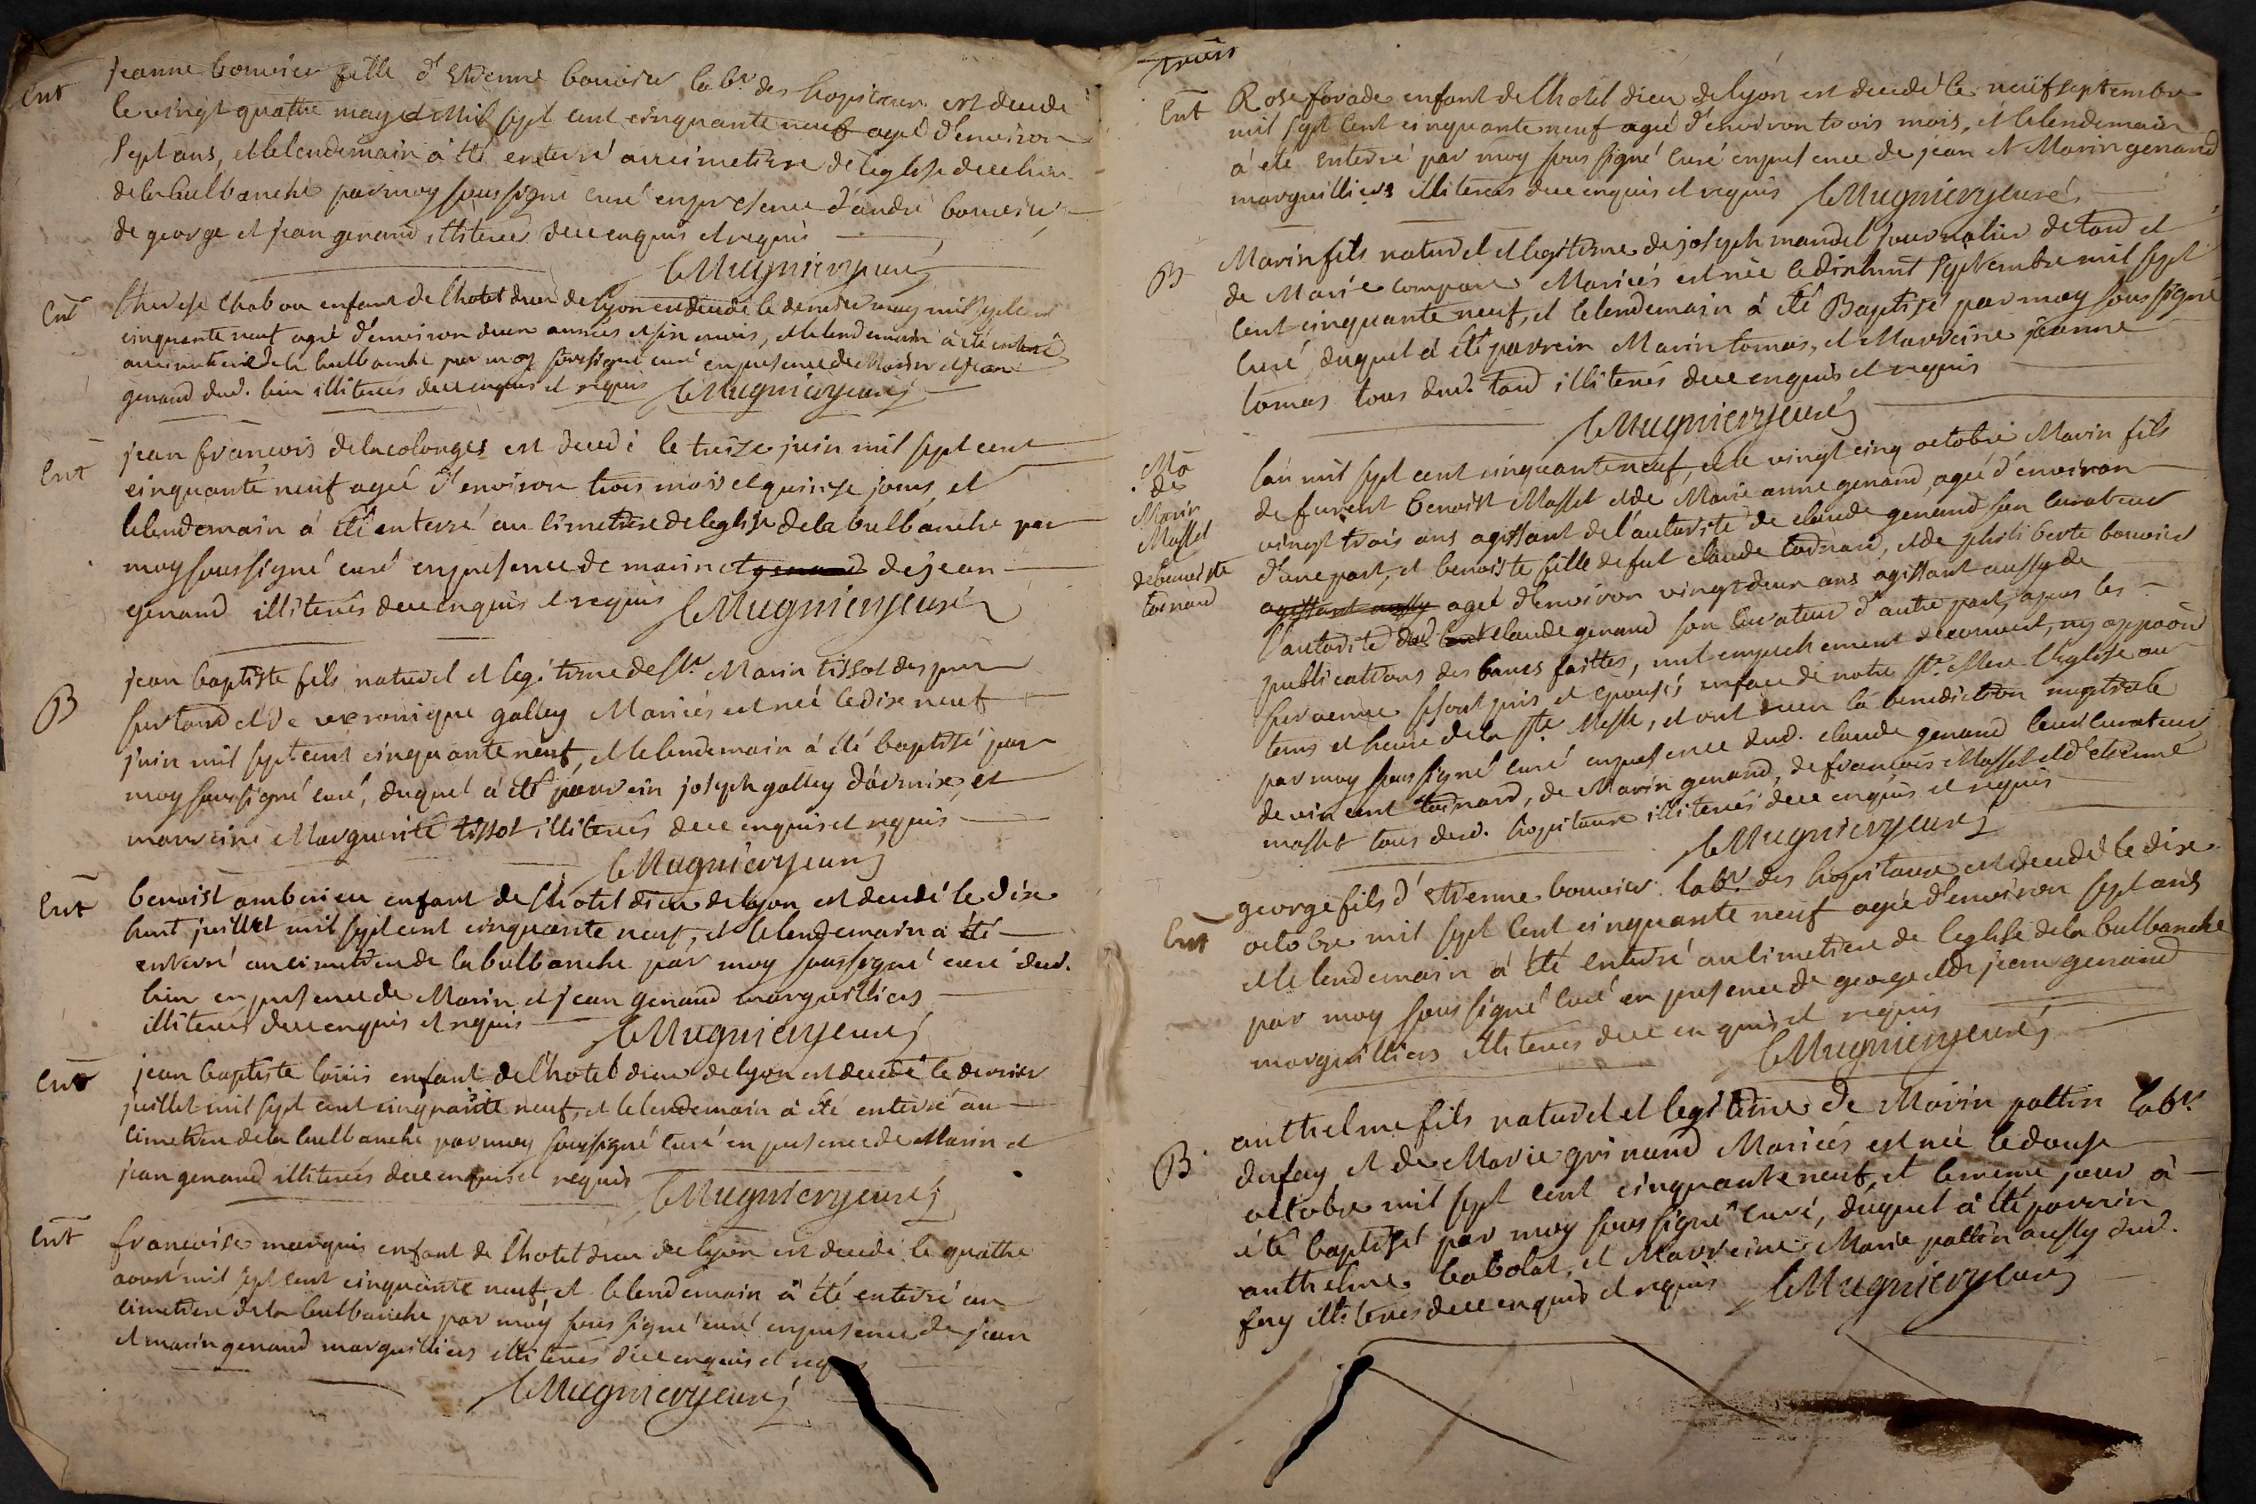 Ent
jeanne bouvier fille d'Etienne bouvier labr. des hopitaux est decedé
le vingt quattre may mil sept cent cinquante neuf ageé d'environ
sept ans, et le lendemain à été enterré au cimetiere de l'eglise
de la bulbanche par moy soussigné curé en presence d'andré bouvier
de george et jean genand illiterés de ce enquis et requis
C Mugnier curé
Ent
therese chabou enfant de l'hotel dieu de lyon est decedé le dernier may mil sept cent
cinquante neuf ageé d'environ deux années et six mois, et le lendemain à été enterré
au cimetiere de la bulbanche par moy soussigné curé en presence de Marin et jean
genand dud. lieu illiterés de ce enquis et requis C Mugnier curé
Ent
jean francois delacolonges est decedé le treize juin mil sept cent
cinquante neuf ageé d'environ trois mois et quinze jours, et
le lendemain à été enterré au cimetiere de l'eglise de la bulbanche par
moy soussigné curé en presence de marin et genand de jean
genand illiterés de ce enquis et requis C Mugnier curé
B
jean baptiste fils naturel et legitime de Sr. Marin tissot
sur tard et de veronique galley Mariés est né le dix neuf
juin mil sept cent cinquante neuf, et le lendemain à été baptisé par
moy soussigné curé, duquel à été parrein joseph galley et
marreine Marguerite tissot illiterés de ce enquis et requis
C Mugnier curé
Ent
benoist amberieu enfant de l'hotel dieu de lyon est decedé le dix
huit juillet mil sept cent cinquante neuf, et le lendemain à été
enterré au cimetiere de la bulbanche par moy soussigné curé dud.
lieu en presence de Marin et jean genand marguilliers
illiterés de ce enquis et requis C Mugnier curé
Ent
jean baptiste louis enfant de l'hotel dieu de lyon est decedé le dernier
juillet mil sept cent cinquante neuf, et le lendemain à été enterré au
cimetiere de la bulbanche par moy soussigné curé en presence de Marin et
jean genand illiterés de ce enquis et requis C Mugnier curé
Ent
francoise marquis enfant de l'hotel dieu de lyon est decedé le quattre
aoust mil sept cent cinquante neuf, et le lendemain à été enterré au
cimetiere de la bulbanche par moy sous signé curé en presence de jean
et marin genand marguilliers illiterés de ce enquis et requis
C Mugnier curé
trois
Ent
Rose forade enfant de l'hotel dieu de lyon est decedé le neuf septembre
mil sept cent cinquante neuf ageé d'environ trois mois, et le lendemain
à eté enterré par moy sous signé curé en presence de jean et Marin genand
marguilliers illiterés de ce enquis et requis C Mugnier curé
B
Marin fils naturel et legitime de joseph mandel journalier de tard et
de Marie compare Mariés est née le dix huit septembre mil sept
cent cinquante neuf, et le lendemain à été Baptisé par moy sous signé
curé, duquel à été parrein Marin tomas, et Marreine jeanne
tomas tous dud. tard illiterés de ce enquis et requis
C Mugnier curé
Ma
de
Marin
Masset
de benoiste
tornard
l'an mil sept cent cinquante neuf, et le vingt cinq octobre Marin fils
de furent benoist Masset et de Marie anne genand, ageé d'environ
vingt trois ans agissant de l'autorité de claude genand son curateur
d'une part, et benoiste fille de fut claude tornard, et de philiberte bouvier
agissant aussy ageé d'environ vingt deux ans agissant aussy de
l'autorité dud claude genand son curateur d'autre part, apres les
publications des bancs faittes, nul empechement decouvert, ny opposition
survenue se sont pris et epousés en face de notre Ste. Mere l'eglise au
tems et heure de la Ste. Messe, et ont receu la benediction nuptiale
par moy sous signé curé en presence dud. claude genand leur curateur
de vincent tornard, de Marin genand, de francois Masset et d'etienne
masset tous desd. hopitaux illiterés de ce enquis et requis
C Mugnier curé
Ent
george fils d'Etienne bouvier labr. des hopitaux est decedé le dix
octobre mil sept cent cinquante neuf ageé d'environ sept ans
et le lendemain à été enterré au cimetiere de l'eglise de la bulbanche
par moy sous signé curé en presence de george et de jean genand
marguilliers illiterés de ce enquis et requis
C Mugnier curé
B
anthelme fils naturel et legitime de Marin pattin labr.
dufay et de Marie grinand Mariés est né le douze
octobre mil sept cent cinquante neuf, et le meme jour à
été baptisé par moy sous signé curé, duquel à été parrein
anthelme babolat, et Marreine Marie pattin aussy dud.
fay illiterés de ce enquis et requis C Mugnier curé